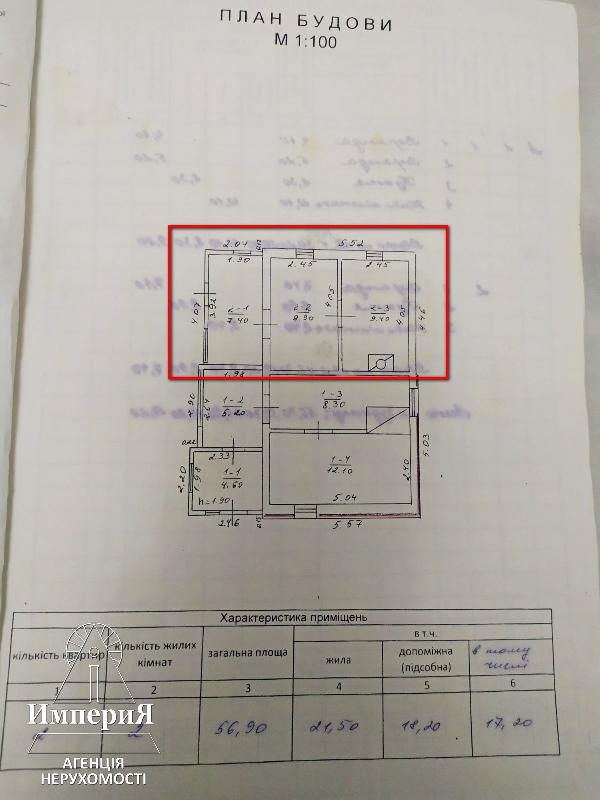 ПЛАН БУДОВИ
М 1:100
2.01
5.52
1.90
2.45
2.45
4.07
3.92
2-1
7.40
2-2
9.90
4.05
2-3
9.40
4.05
4.46
1.98
4.90
2.64
1-2
5.20
1-3
8.30
5.03
2.33
2.20
1.98
1-1
4.60
h=1.90
1-4
12.10
2.40
5.04
2.46
5.57
Характеристика приміщень
кількість квартир
кількість жилих кімнат
загальна площа
в т.ч.
жила
допоміжна (підсобна)
в тому числі
1 2 3 4 5 6
2 2 56,90 21,50 18,20 17,20
ИмпериЯ
АГЕНЦІЯ
НЕРУХОМОСТІ